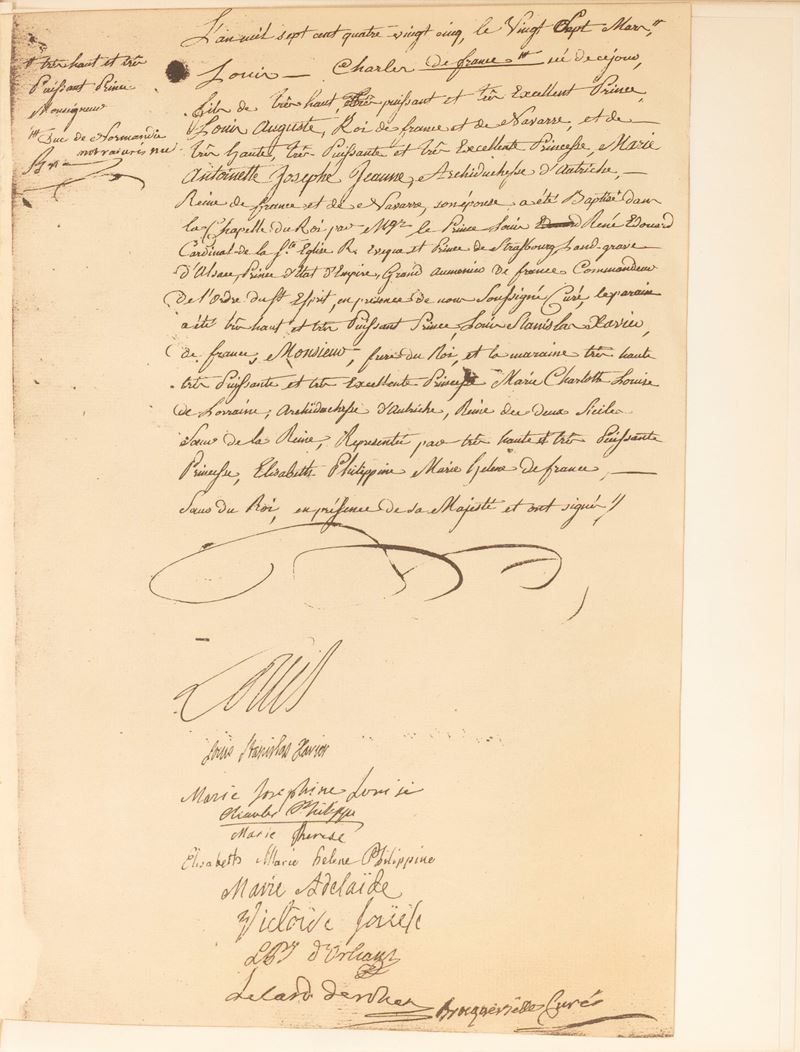 L'an mil sept cent quatre vingt cinq, le Vingt Sept Mars,
" très haut et très
Puissant Prince
Monseigneur
"' Duc de Normandie
Louis — Charles de france "' né de ce jour,
fils de très haut très puissant et très Excellent Prince,
Louis Auguste, Roi de france et de Navarre, et de
très haute, très Puissante et très Excellente Princesse, Marie
Antoinette Josephe Jeanne, Archiduchesse d'Autriche, —
Reine de france et de Navarre, son épouse a été Baptisé dans
la Chapelle du Roi par Mgr. le Prince Louis René Edouard
Cardinal de la Ste Eglise R. Eveque et Prince de Strasbourg, Land-grave
d'Alsace, Prince d'Etat d'Empire, Grand aumonier de france Commandeur
De l'Ordre du St Esprit, en présence de nous Soussigné Curé, le parain
a été très haut et très Puissant Prince, Louis Stanislas Xavier,
de france, Monsieur, frere du Roi, et la maraine très haute
très Puissante et très Excellente Princesse Marie Charlotte Louise
de Lorraine, Archiduchesse d'Autriche, Reine des deux Siciles
Sœur de la Reine, Representée par très haute et très Puissante
Princesse, Elisabeth Philippine Marie helene de france, —
Sœur du Roi, en présence de sa Majesté et ont signé //
Louis
Louis Stanislas Xavier
Marie Josephine Louise
Charles Philippe
Marie Therese
Elisabeth Marie helene Philippine
Marie Adelaïde
Victoire Louise
L. P. J. d'Orleans
Le Card de rohan
Brocquevielle Curé